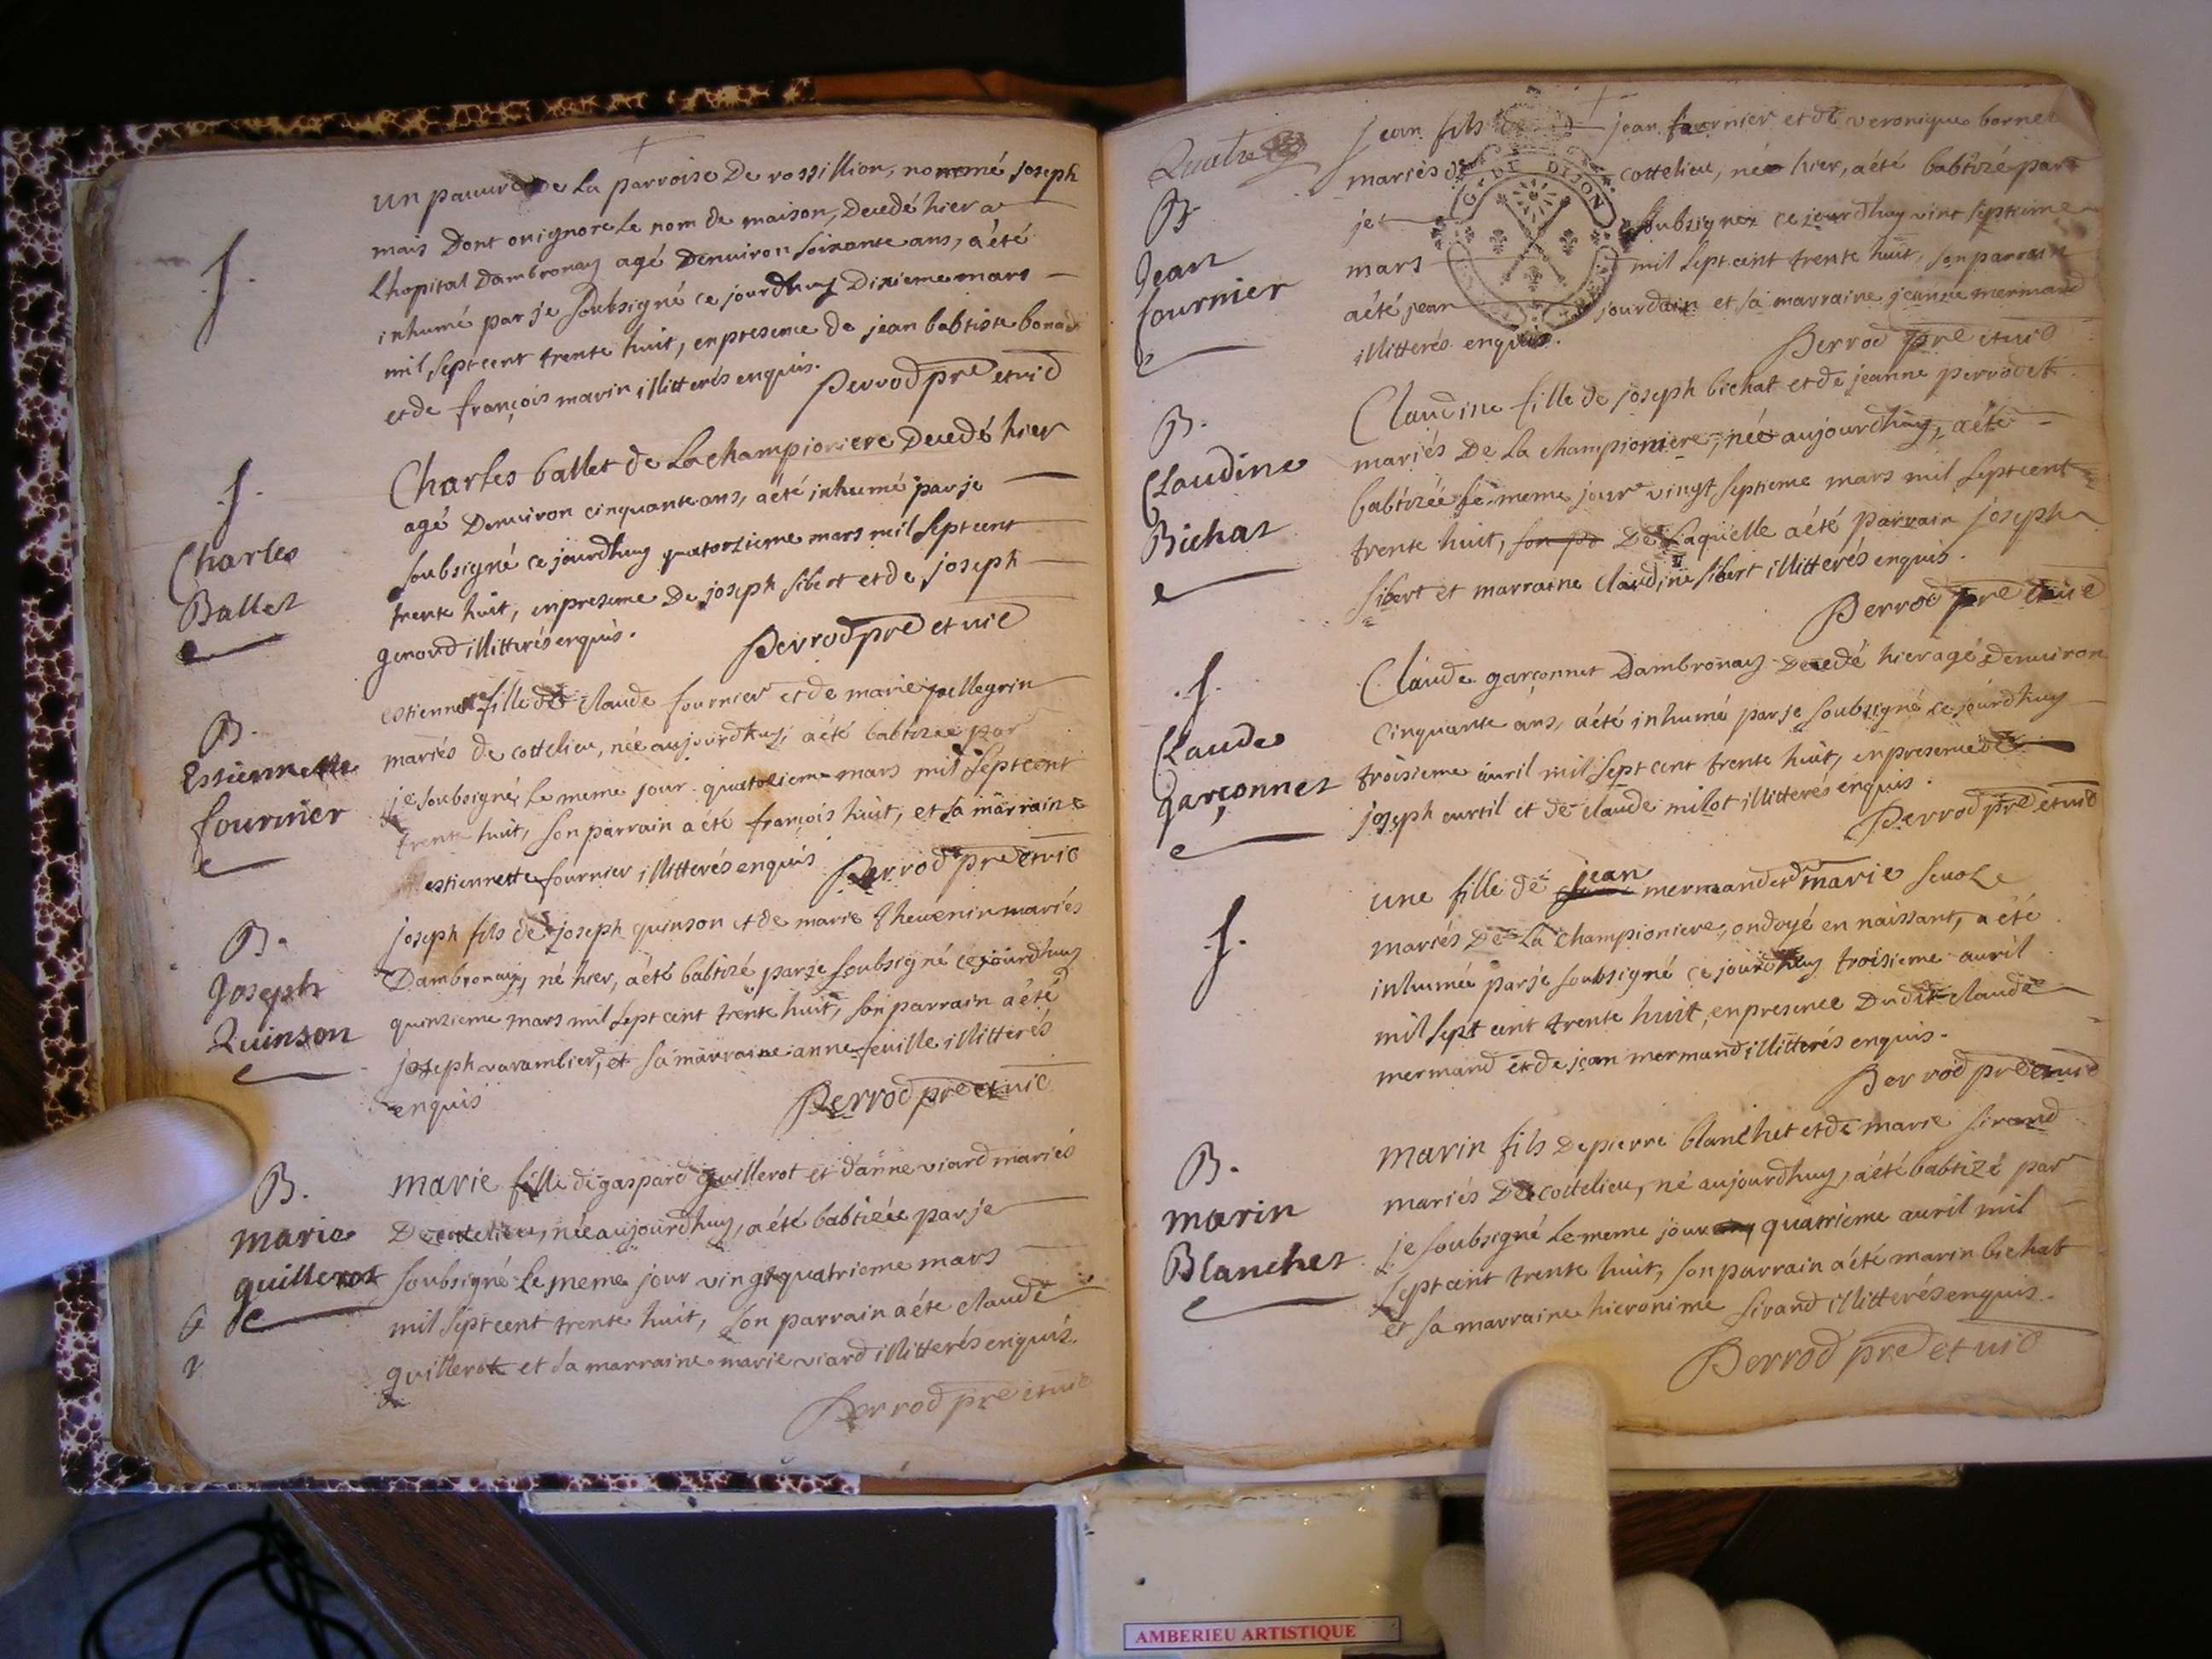 un pauvre de la parroise de rossillion, nommé joseph
mais dont on ignore le nom de maison, decedé hier a
l'hopital dambronay agé denuiron soixante ans, a été
inhumé par je soubsigné ce jourdhuy dixieme mars
mil sept cent trente huit, en presence de jean babtiste bonad
et de françois marin illitterés enquis.
Perrod pre et vic
f.
Charles ballet de la championiere decedé hier
agé denuiron cinquante ans, a été inhumé par je
soubsigné ce jourdhuy quatorzieme mars mil sept cent
trente huit, en presence de joseph sibert et de joseph
genoud illitterés enquis.
Perrod pre et vic
f.
Charles
Ballet
estiennette fille de claude fournier et de marie pellegrin
mariés de cottelieu, née aujourdhuy, a été babtizée par
je soubsigné, le meme jour quatorzieme mars mil sept cent
trente huit, son parrain a été françois huit, et sa marraine
estiennette fournier illitterés enquis
Perrod pre et vic
B.
Estiennette
fournier
joseph fils de joseph quinson et de marie thevenin mariés
Dambronay, né hier, a été babtizé par je soubsigné ce jourdhuy
quinzieme mars mil sept cent trente huit, son parrain a été
joseph varambier, et sa marraine anne feuille illitterés
enquis
Perrod pre et vic
B.
Joseph
Quinson
marie fille de gaspard guillerot et d'anne viard mariés
De cottelieu, née aujourdhuy, a été babtizée par je
soubsigné le meme jour vingt quatrieme mars
mil sept cent trente huit, son parrain a été claude
guillerot et sa marraine marie viard illitterés enquis.
Perrod pre et vic
B.
marie
guillerot
Quatre
jean fils de jean fournier et de veronique bornet
mariés de cottelieu, né hier, a été babtizé par
je soubsigné ce jourdhuy vint septieme
mars mil sept cent trente huit, son parrain
a été jean jourdain et sa marraine jeanne mermand
illitterés enquis.
Perrod pre et vic
G. DE DIJON
B
Jean
fournier
Claudine fille de joseph bichat et de jeanne perrodet
mariés de la championiere, née aujourdhuy, a été
babtizée le meme jour vingt septieme mars mil sept cent
trente huit, son pa de laquelle a été parrain joseph
sibert et marraine claudine sibert illitterés enquis.
Perrod pre et vic
B.
Claudine
Bichat
Claude garçonnet Dambronay decedé hier agé denuiron
cinquante ans, a été inhumé par je soubsigné ce jourdhuy
troisieme auril mil sept cent trente huit, en presence de
joseph curtil et de claude milot illitterés enquis.
Perrod pre et vic
f.
Claude
garçonnet
une fille de jean mermand et de marie seuole
mariés de la championiere, ondoyé en naissant, a été
inhumée par je soubsigné ce jourdhuy troisieme auril
mil sept cent trente huit, en presence dudit claude
mermand et de jean mermand illitterés enquis.
Perrod pre et vic
f.
marin fils de pierre blanchet et de marie sirand
mariés de cottelieu, né aujourdhuy, a été babtizé par
je soubsigné le meme jour quatrieme auril mil
sept cent trente huit, son parrain a été marin bichat
et sa marraine hieronime sirand illitterés enquis.
Perrod pre et vic
B.
marin
Blanchet
AMBERIEU ARTISTIQUE